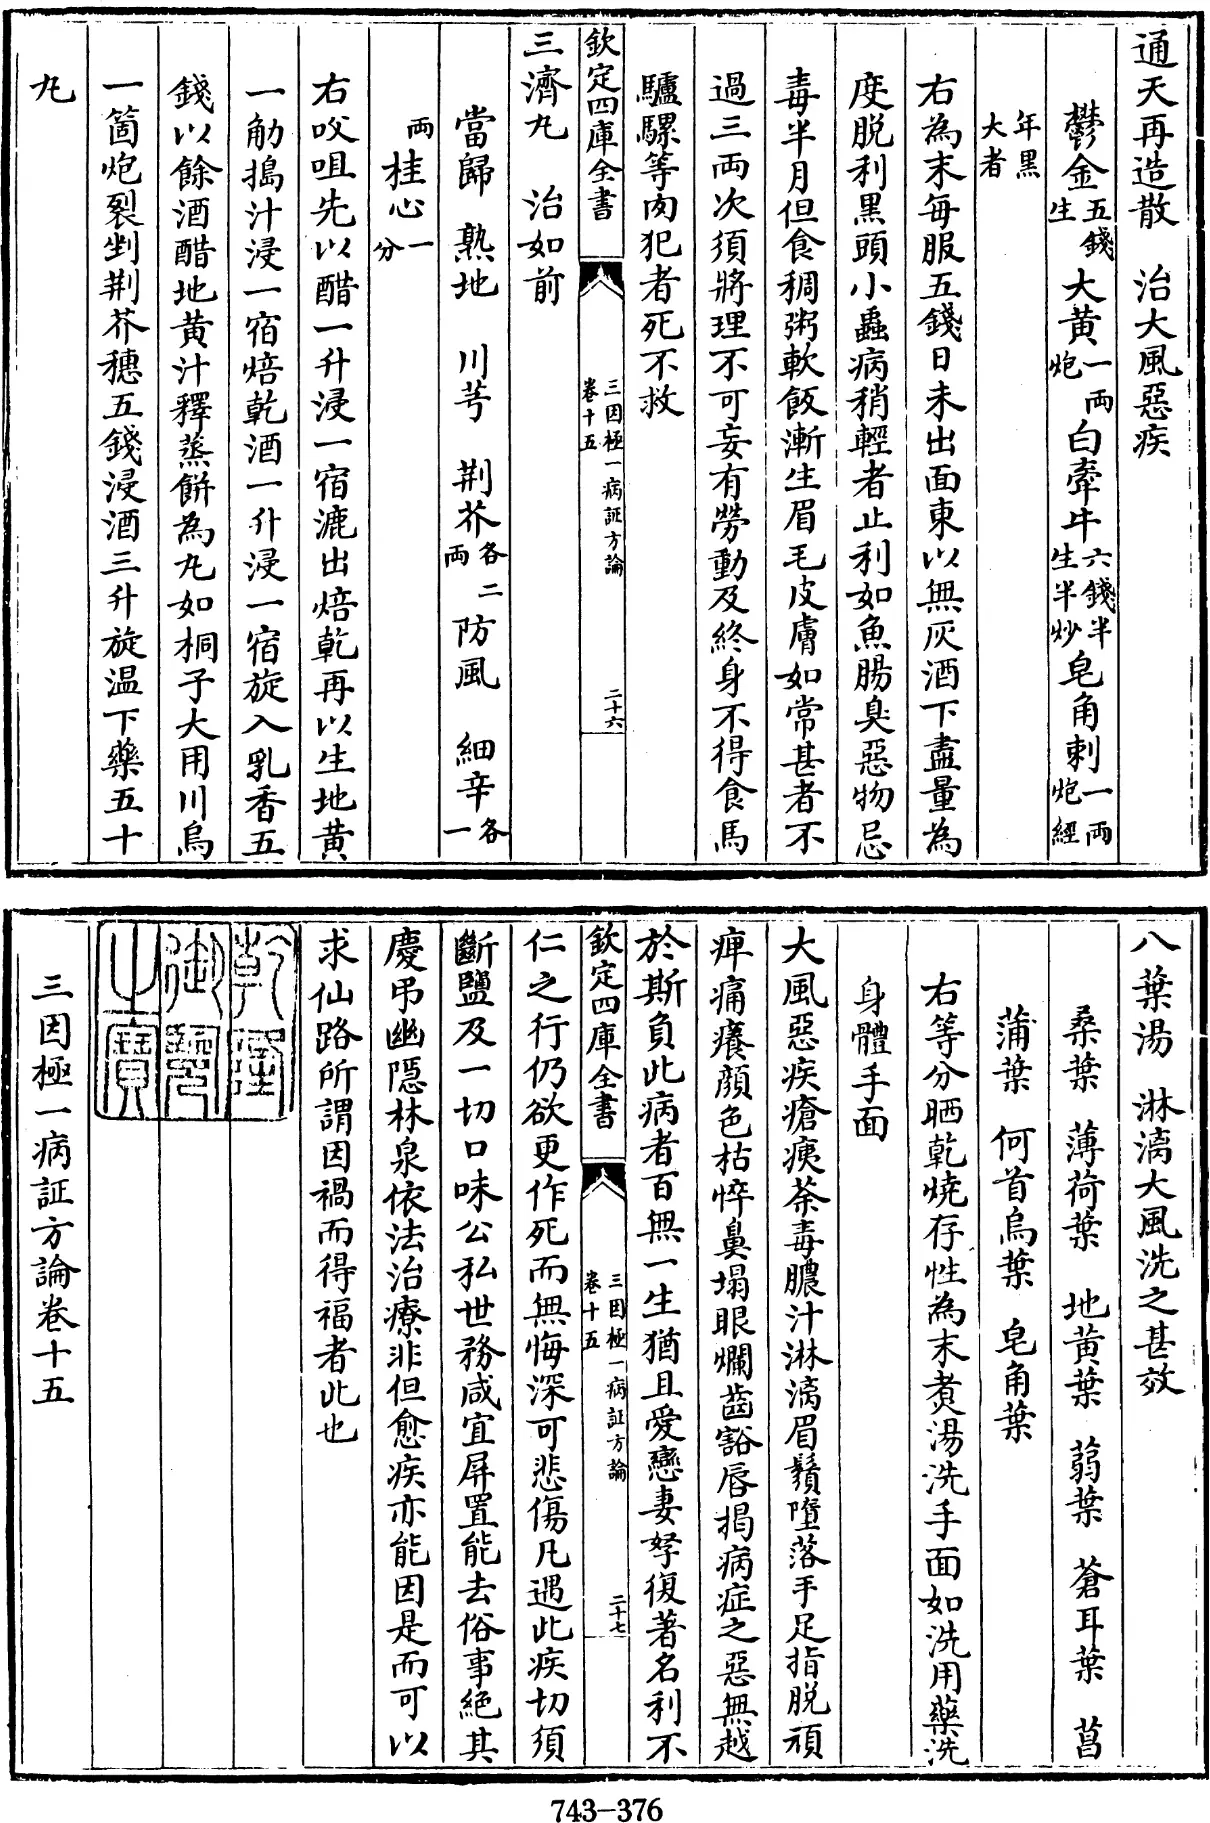 通天再造散　治大風惡疾
鬱金五錢生　大黄一兩炮　白牽牛六錢半生半炒　皂角刺一兩炮經
年黒大者
右為末毎服五錢日未出面東以無灰酒下盡量為
度脱利黒頭小蟲病稍輕者止利如魚腸臭惡物忌
毒半月但食稠粥軟飯漸生眉毛皮膚如常甚者不
過三兩次須將理不可妄有勞動及終身不得食馬
驢騾等肉犯者死不救
欽定四庫全書　三因極一病証方論卷十五　二十六
三濟丸　治如前
當歸　熟地　川芎　荆芥各二兩　防風　細辛各一
兩　桂心一分
右㕮咀先以醋一升浸一宿漉出焙乾再以生地黄
一觔搗汁浸一宿焙乾酒一升浸一宿旋入乳香五
錢以餘酒醋地黄汁釋蒸餅為丸如桐子大用川烏
一箇炮裂剉荆芥穗五錢浸酒三升旋温下藥五十
丸
八葉湯　淋漓大風洗之甚效
桑葉　薄荷葉　地黄葉　蒻葉　蒼耳葉　菖
蒲葉　何首烏葉　皂角葉
右等分晒乾燒存性為末煮湯洗手面如洗用藥洗
身體手面
大風惡疾瘡痍荼毒膿汁淋漓眉鬚墮落手足指脱頑
痺痛癢顔色枯悴鼻塌眼爛齒豁唇揭病症之惡無越
於斯負此病者百無一生猶且愛戀妻孥復著名利不
欽定四庫全書　三因極一病証方論卷十五　二十七
仁之行仍欲更作死而無悔深可悲傷凡遇此疾切須
斷鹽及一切口味公私世務咸宜屏置能去俗事絶其
慶弔幽隠林泉依法治療非但愈疾亦能因是而可以
求仙路所謂因禍而得福者此也
乾隆御覽之寶
三因極一病証方論卷十五
743-376